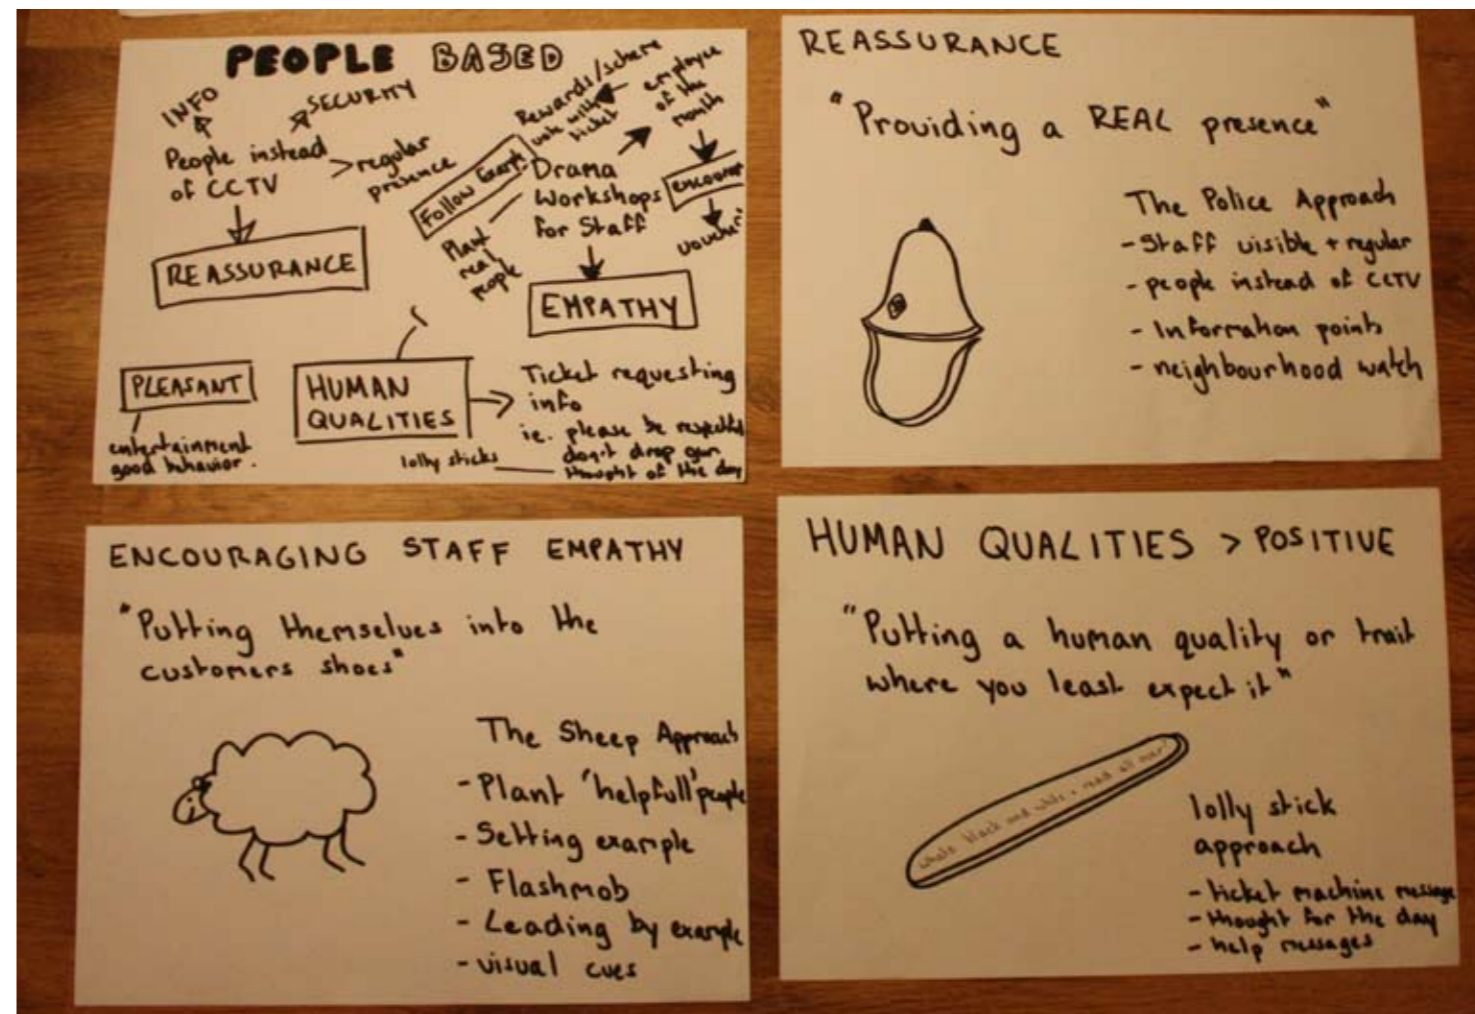 PEOPLE BASED
INFO
SECURITY
People instead
of CCTV
> regular
presence
REASSURANCE
Rewards/scheme
vote with
ticket
employee
of the
month
Follow
Drama
Workshops
for Staff
Plant
real
people
EMPATHY
PLEASANT
entertainment
good behavior.
HUMAN
QUALITIES
Ticket requesting
info
ie. please be respectful
don't drop gum
lolly sticks
thought of the day
REASSURANCE
"Providing a REAL presence"
The Police Approach
- Staff visible + regular
- people instead of CCTV
- Information points
- neighbourhood watch
ENCOURAGING STAFF EMPATHY
"Putting themselves into the
customers shoes"
The Sheep Approach
- Plant 'helpfull' people
- Setting example
- Flashmob
- Leading by example
- visual cues
HUMAN QUALITIES > POSITIVE
"Putting a human quality or trait
where you least expect it"
whats black and white + read all over?
lolly stick
approach
- ticket machine message
- thought for the day
- help messages